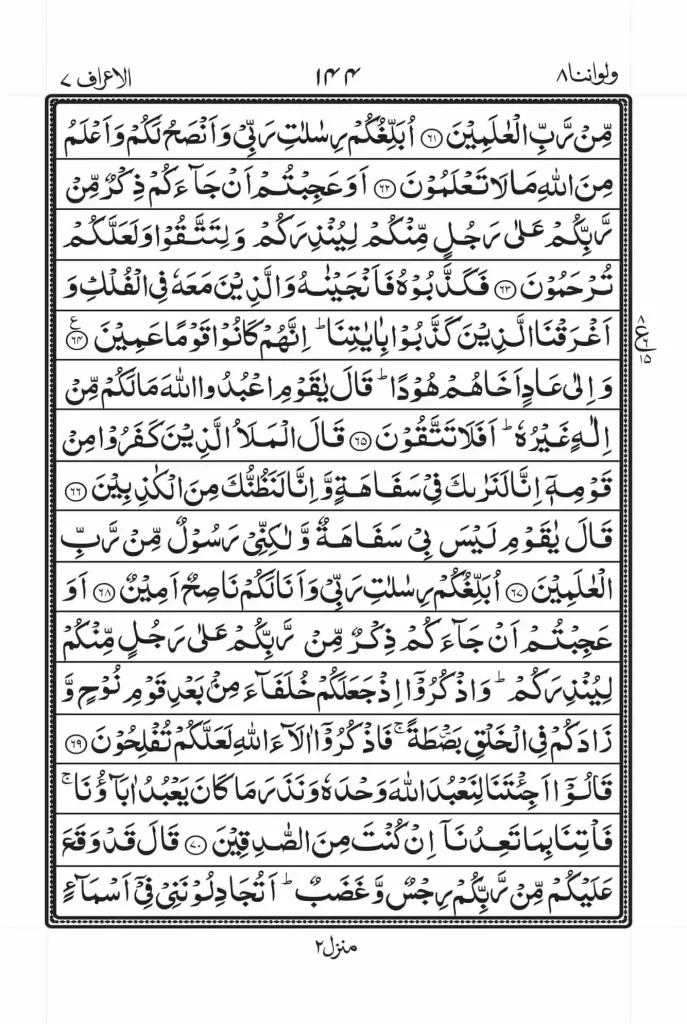 ولواننا ۸ ۱۴۴ الاعراف ۷
مِّنۡ رَّبِّ الۡعٰلَمِيۡنَ ﴿۶۱﴾ اُبَلِّغُكُمۡ رِسٰلٰتِ رَبِّىۡ وَاَنۡصَحُ لَـكُمۡ وَاَعۡلَمُ
مِنَ اللّٰهِ مَا لَا تَعۡلَمُوۡنَ ﴿۶۲﴾ اَوَعَجِبۡتُمۡ اَنۡ جَآءَكُمۡ ذِكۡرٌ مِّنۡ
رَّبِّكُمۡ عَلٰى رَجُلٍ مِّنۡكُمۡ لِيُنۡذِرَكُمۡ وَلِتَتَّقُوۡا وَلَعَلَّكُمۡ
تُرۡحَمُوۡنَ ﴿۶۳﴾ فَكَذَّبُوۡهُ فَاَنۡجَيۡنٰهُ وَالَّذِيۡنَ مَعَهٗ فِى الۡفُلۡكِ وَ
اَغۡرَقۡنَا الَّذِيۡنَ كَذَّبُوۡا بِاٰيٰتِنَا ؕ اِنَّهُمۡ كَانُوۡا قَوۡمًا عَمِيۡنَ ﴿۶۴﴾ ع
۸ ع ۶ ۱۵
وَاِلٰى عَادٍ اَخَاهُمۡ هُوۡدًا ؕ قَالَ يٰقَوۡمِ اعۡبُدُوا اللّٰهَ مَا لَـكُمۡ مِّنۡ
اِلٰهٍ غَيۡرُهٗ ؕ اَفَلَا تَتَّقُوۡنَ ﴿۶۵﴾ قَالَ الۡمَلَاُ الَّذِيۡنَ كَفَرُوۡا مِنۡ
قَوۡمِهٖۤ اِنَّا لَــنَرٰٮكَ فِىۡ سَفَاهَةٍ وَّاِنَّا لَــنَظُنُّكَ مِنَ الۡـكٰذِبِيۡنَ ﴿۶۶﴾
قَالَ يٰقَوۡمِ لَيۡسَ بِىۡ سَفَاهَةٌ وَّلٰـكِنِّىۡ رَسُوۡلٌ مِّنۡ رَّبِّ
الۡعٰلَمِيۡنَ ﴿۶۷﴾ اُبَلِّغُكُمۡ رِسٰلٰتِ رَبِّىۡ وَاَنَا لَـكُمۡ نَاصِحٌ اَمِيۡنٌ ﴿۶۸﴾ اَوَ
عَجِبۡتُمۡ اَنۡ جَآءَكُمۡ ذِكۡرٌ مِّنۡ رَّبِّكُمۡ عَلٰى رَجُلٍ مِّنۡكُمۡ
لِيُنۡذِرَكُمۡ ؕ وَاذۡكُرُوۡۤا اِذۡ جَعَلَـكُمۡ خُلَفَآءَ مِنۡۢ بَعۡدِ قَوۡمِ نُوۡحٍ وَّ
زَادَكُمۡ فِى الۡخَـلۡقِ بَصۜۡطَةً ۚ فَاذۡكُرُوۡۤا اٰ لَۤاءَ اللّٰهِ لَعَلَّكُمۡ تُفۡلِحُوۡنَ ﴿۶۹﴾
قَالُوۡۤا اَجِئۡتَنَا لِنَعۡبُدَ اللّٰهَ وَحۡدَهٗ وَنَذَرَ مَا كَانَ يَعۡبُدُ اٰبَآؤُنَا ۚ
فَاۡتِنَا بِمَا تَعِدُنَاۤ اِنۡ كُنۡتَ مِنَ الصّٰدِقِيۡنَ ﴿۷۰﴾ قَالَ قَدۡ وَقَعَ
عَلَيۡكُمۡ مِّنۡ رَّبِّكُمۡ رِجۡسٌ وَّغَضَبٌ ؕ اَتُجَادِلُوۡنَنِىۡ فِىۡۤ اَسۡمَآءٍ
منزل ۲